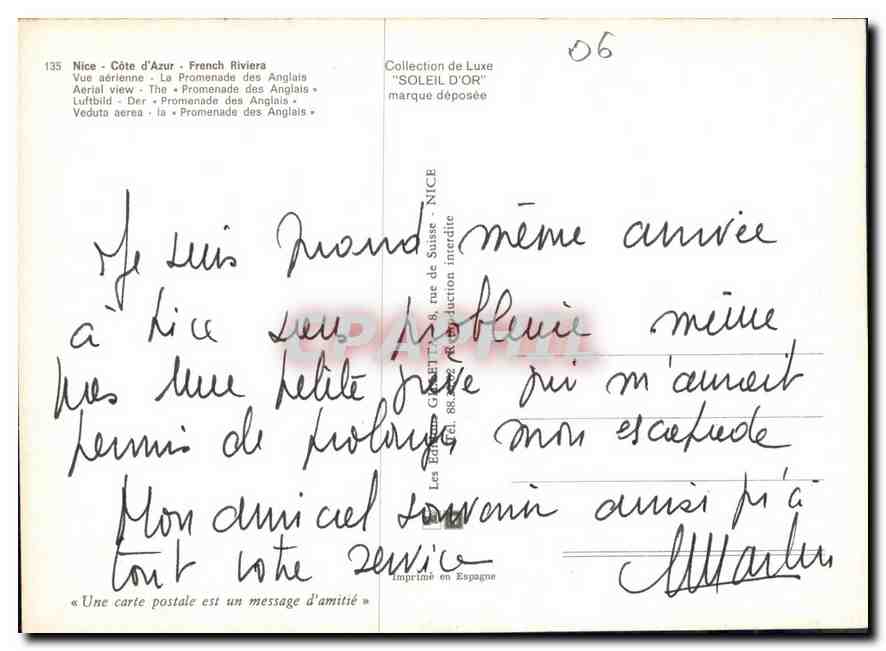 06
135 Nice - Côte d'Azur - French Riviera
Vue aérienne - La Promenade des Anglais
Aerial view - The « Promenade des Anglais »
Luftbild - Der « Promenade des Anglais »
Veduta aerea - la « Promenade des Anglais »
Collection de Luxe
"SOLEIL D'OR"
marque déposée
Je suis quand même arrivée
à Nice sans problème même
pas une petite grève qui m'aurait
permis de prolonger mon escapade
Mon amical souvenir ainsi qu'à
tout votre service
MMartin
Les Editions GILLETTA, 8, rue de Suisse - NICE
Reproduction interdite
CPAPHIL
Imprimé en Espagne
« Une carte postale est un message d'amitié »